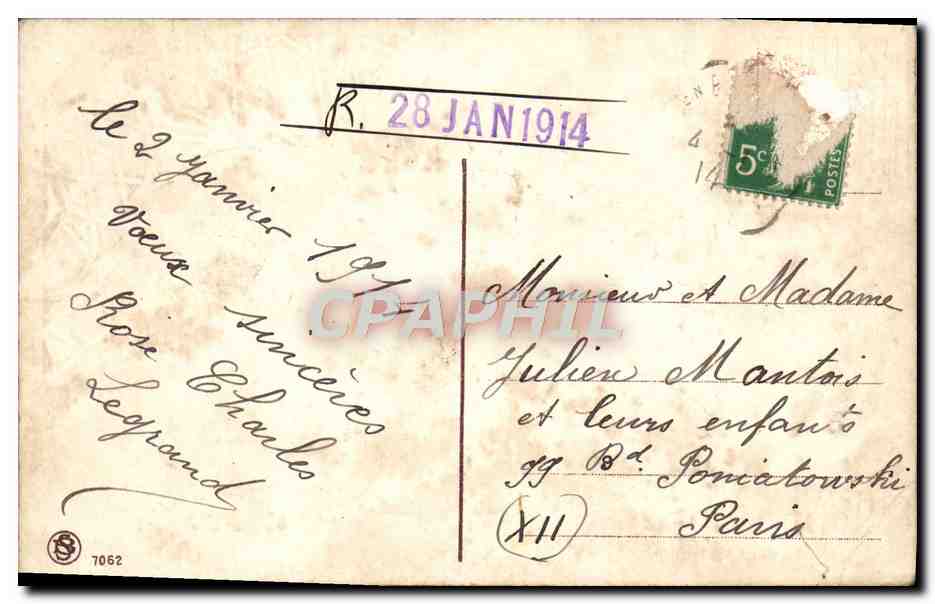 R. 28 JAN 1914
le 2 Janvier 191
Voeux sincères
Rose Charles
Legrand
EN B
4
14
5c
POSTES
CPAPHIL
Monsieur et Madame
Julien Mantois
et leurs enfants
99 Bd. Poniatowski
XII Paris
7062